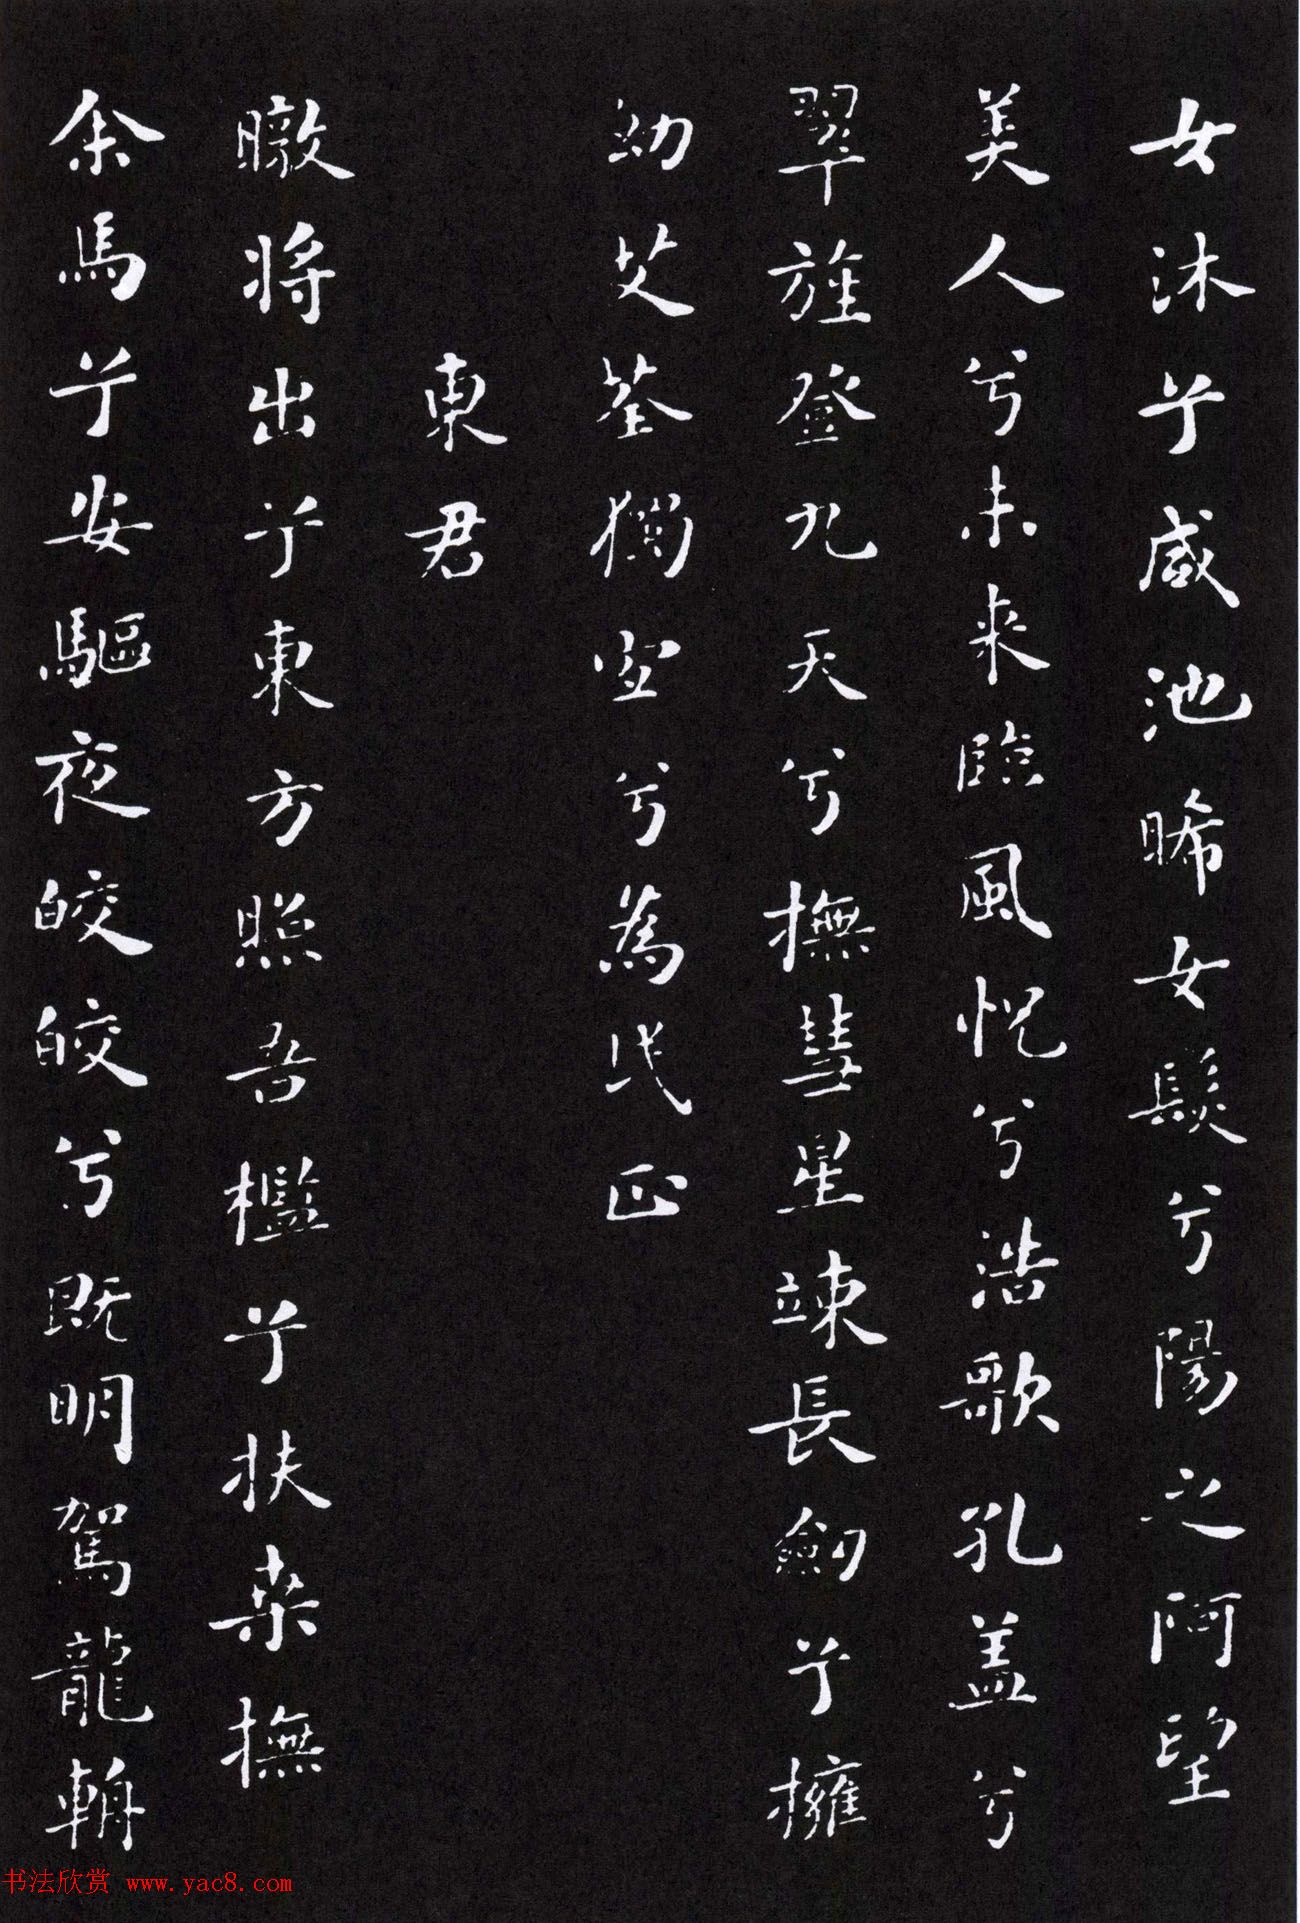 女沐兮咸池晞女髮兮陽之阿望
美人兮未来臨風怳兮浩歌孔盖兮
翠旍登九天兮撫彗星竦長劒兮擁
幼艾荃獨宜兮為民正
東君
暾将出兮東方照吾檻兮扶桒撫
余馬兮安驅夜皎皎兮既明駕龍輈
书法欣赏 www.yac8.com